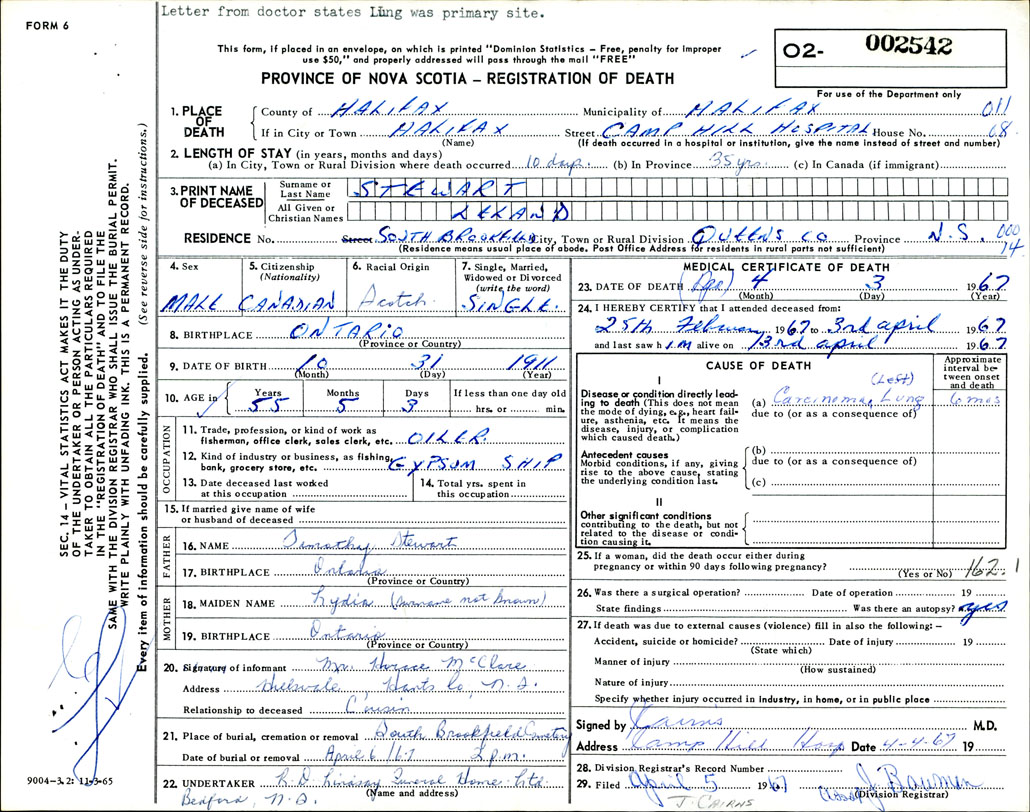 Letter from doctor states Lung was primary site.
FORM 6
This form, if placed in an envelope, on which is printed "Dominion Statistics – Free, penalty for improper
use $50," and properly addressed will pass through the mail "FREE"
PROVINCE OF NOVA SCOTIA – REGISTRATION OF DEATH
O2- 002542
For use of the Department only
1. PLACE OF DEATH
County of HALIFAX Municipality of HALIFAX 011
If in City or Town HALIFAX Street CAMP HILL HOSPITAL House No. 68
(Name) (If death occurred in a hospital or institution, give the name instead of street and number)
2. LENGTH OF STAY (in years, months and days)
(a) In City, Town or Rural Division where death occurred 10 days (b) In Province 35 yrs. (c) In Canada (if immigrant)
3. PRINT NAME OF DECEASED
Surname or Last Name STEWART
All Given or Christian Names LELAND
RESIDENCE No. Street SOUTH BROOKFIELD City, Town or Rural Division QUEENS CO Province N.S. 000
14
(Residence means usual place of abode. Post Office Address for residents in rural parts not sufficient)
4. Sex MALE
5. Citizenship (Nationality) CANADIAN
6. Racial Origin Scotch
7. Single, Married, Widowed or Divorced (write the word) SINGLE.
8. BIRTHPLACE ONTARIO
(Province or Country)
9. DATE OF BIRTH 10 31 1911
(Month) (Day) (Year)
10. AGE in Years Months Days If less than one day old
55 5 3 hrs. or min.
OCCUPATION
11. Trade, profession, or kind of work as fisherman, office clerk, sales clerk, etc. OILER.
12. Kind of industry or business, as fishing, bank, grocery store, etc. GYPSUM SHIP
13. Date deceased last worked at this occupation
14. Total yrs. spent in this occupation
15. If married give name of wife or husband of deceased
FATHER
16. NAME Timothy Stewart
17. BIRTHPLACE Ontario
(Province or Country)
MOTHER
18. MAIDEN NAME Lydia (surname not known)
19. BIRTHPLACE Ontario
(Province or Country)
20. Signature of informant Mr. Horace McClare
Address Hillsvale, Hants Co, N.S.
Relationship to deceased Cousin
21. Place of burial, cremation or removal South Brookfield Cemetery
Date of burial or removal April 6 1967 2 p.m.
22. UNDERTAKER R.D. Lindsay Funeral Home Ltd.
(Name and address)
Bedford, N.S.
MEDICAL CERTIFICATE OF DEATH
23. DATE OF DEATH (Apr) 4 3 1967
(Month) (Day) (Year)
24. I HEREBY CERTIFY that I attended deceased from:
25th February 1967 to 3rd april 1967
and last saw h im alive on 3rd april 1967
CAUSE OF DEATH
Approximate interval between onset and death
I
Disease or condition directly leading to death (This does not mean the mode of dying, e.g., heart failure, asthenia, etc. It means the disease, injury, or complication which caused death.)
(Left)
(a) Carcinoma, Lung 6 mos
due to (or as a consequence of)
Antecedent causes
Morbid conditions, if any, giving rise to the above cause, stating the underlying condition last.
(b)
due to (or as a consequence of)
(c)
II
Other significant conditions contributing to the death, but not related to the disease or condition causing it.
25. If a woman, did the death occur either during
pregnancy or within 90 days following pregnancy? 162.1
(Yes or No)
26. Was there a surgical operation? Date of operation 19
State findings Was there an autopsy? yes
27. If death was due to external causes (violence) fill in also the following: –
Accident, suicide or homicide? Date of injury 19
(State which)
Manner of injury
(How sustained)
Nature of injury
Specify whether injury occurred in industry, in home, or in public place
Signed by Cairns M.D.
Address Camp Hill Hosp Date 4-4-67 19
28. Division Registrar's Record Number
29. Filed April 5 1967 J Bauman
(Division Registrar)
J. CAIRNS
SEC. 14 – VITAL STATISTICS ACT MAKES IT THE DUTY
OF THE UNDERTAKER OR PERSON ACTING AS UNDER-
TAKER TO OBTAIN ALL THE PARTICULARS REQUIRED
IN THE "REGISTRATION OF DEATH" AND TO FILE THE
SAME WITH THE DIVISION REGISTRAR WHO SHALL ISSUE THE BURIAL PERMIT.
WRITE PLAINLY WITH UNFADING INK. THIS IS A PERMANENT RECORD.
Every item of information should be carefully supplied. (See reverse side for instructions.)
9004-3.2: 11-3-65